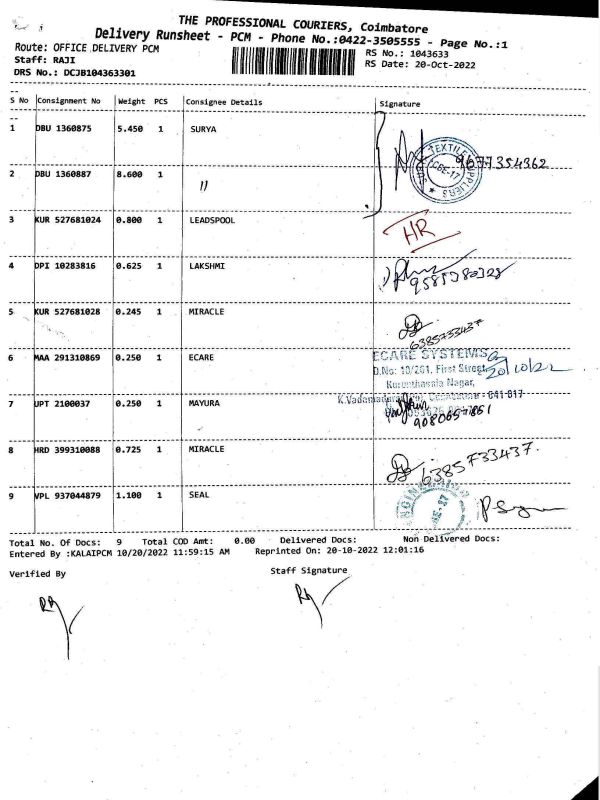 THE PROFESSIONAL COURIERS, Coimbatore
Delivery Runsheet - PCM - Phone No.:0422-3505555 - Page No.:1
Route: OFFICE DELIVERY PCM RS No.: 1043633
Staff: RAJI RS Date: 20-Oct-2022
DRS No.: DCJB104363301
S No Consignment No Weight PCS Consignee Details Signature
1 DBU 1360875 5.450 1 SURYA
TEXTILE SUPPLIERS CBE-17 9677354362
2 DBU 1360887 8.600 1 "
3 KUR 527681024 0.800 1 LEADSPOOL HR
4 DPI 10283816 0.625 1 LAKSHMI
9585780328
5 KUR 527681028 0.245 1 MIRACLE
6385733437
6 MAA 291310869 0.250 1 ECARE ECARE SYSTEMS
D.No: 10/201, First Street, 20/10/22
Nagar,
Coimbatore - 641 017
7 UPT 2100037 0.250 1 MAYURA
9080657861
8 HRD 399310088 0.725 1 MIRACLE 6385733437.
9 VPL 937044879 1.100 1 SEAL
Total No. Of Docs: 9 Total COD Amt: 0.00 Delivered Docs: Non Delivered Docs:
Entered By :KALAIPCM 10/20/2022 11:59:15 AM Reprinted On: 20-10-2022 12:01:16
Verified By Staff Signature